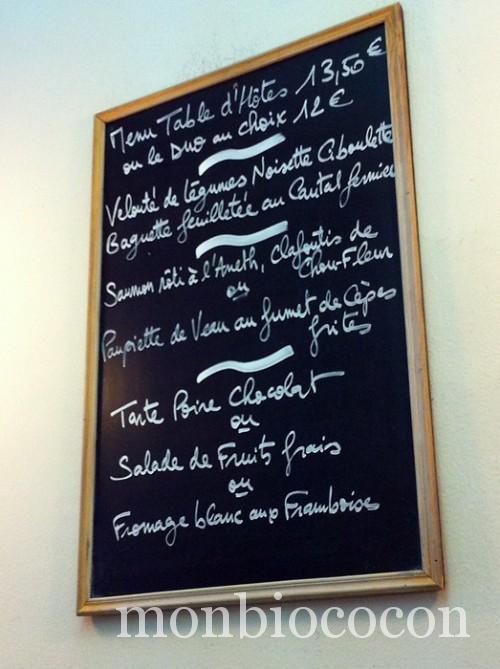 Menu Table d'Hôtes 13,50 €
ou le Duo au choix 12 €
Velouté de légumes Noisette Ciboulette
Baguette feuilletée au Cantal fermier
Saumon rôti à l'Aneth, Clafoutis de
Chou-Fleur
ou
Paupiette de Veau au fumet de Cèpes
frites
Tarte Poire Chocolat
ou
Salade de Fruits frais
ou
Fromage blanc aux Framboises
monbiococon